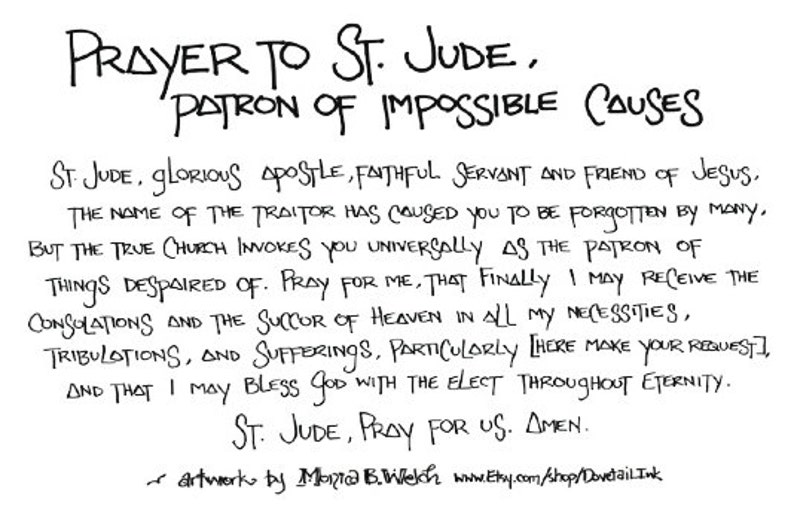 Prayer to St. Jude,
Patron of Impossible Causes
St. Jude, glorious Apostle, faithful servant and friend of Jesus,
the name of the traitor has caused you to be forgotten by many,
but the true Church invokes you universally as the patron of
things despaired of. Pray for me, that finally I may receive the
consolations and the succor of Heaven in all my necessities,
tribulations, and sufferings, particularly [here make your request],
and that I may bless God with the elect throughout eternity.
St. Jude, pray for us. Amen.
~ artwork by Monica B. Welch www.Etsy.com/shop/DovetailInk